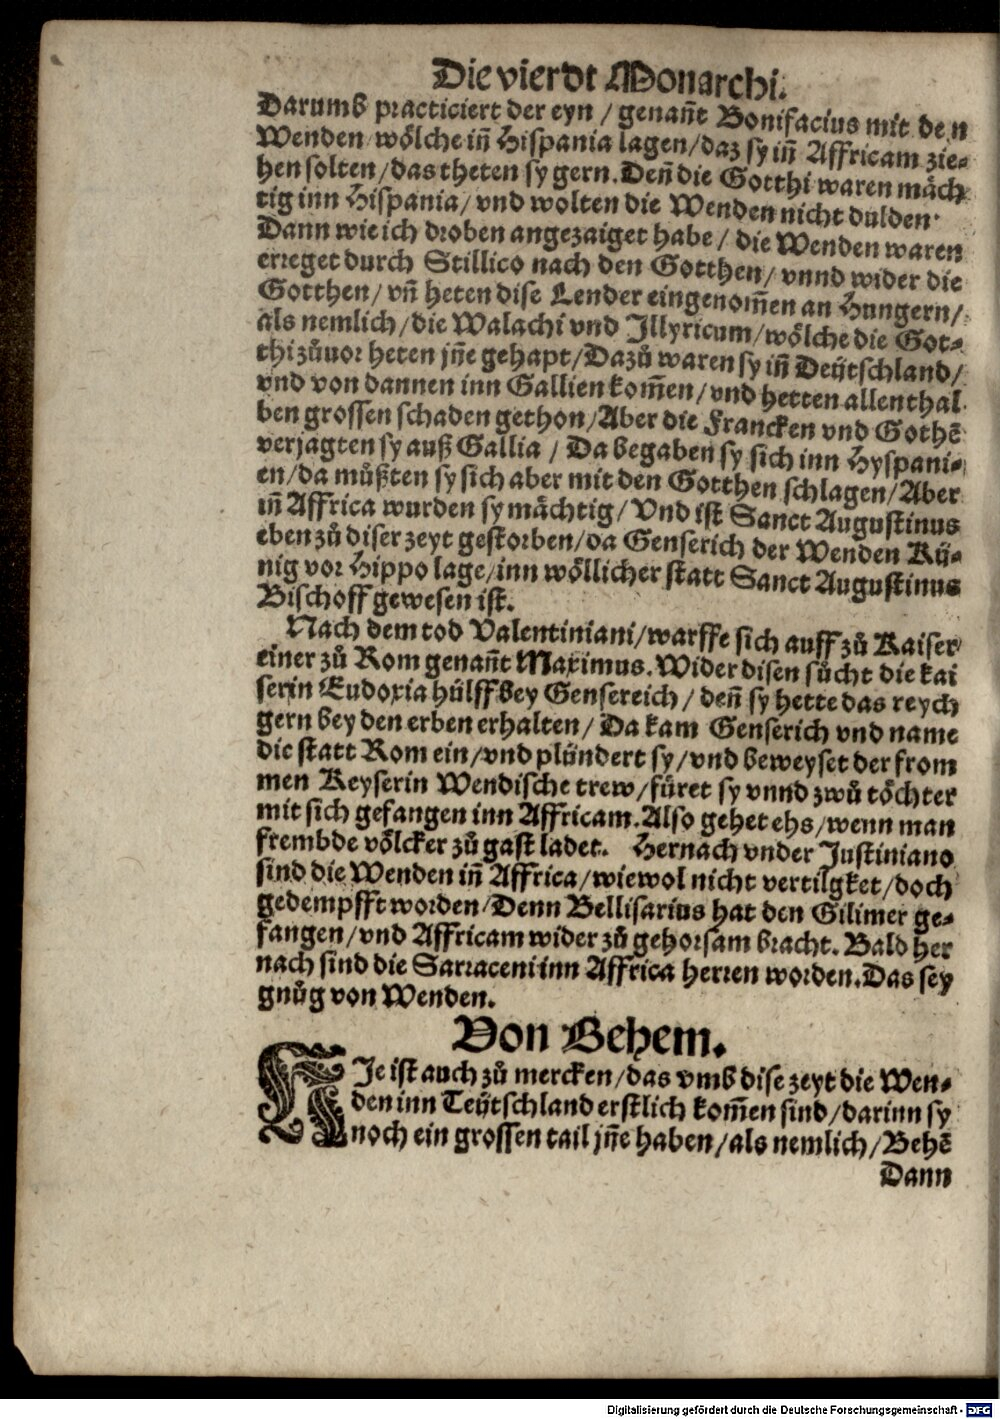 Die vierdt Monarchi.
Darumb practiciert der eyn / genañt Bonifacius mit den
Wenden wölche iñ Hispania lagen / daz sy iñ Affricam zie⸗
hen solten / das theten sy gern. Deñ die Gotthi waren mäch
tig inn Hispania / vnd wolten die Wenden nicht dulden.
Dann wie ich droben angezaiget habe / die Wenden waren
erreget durch Stillico nach den Gotthen / vnnd wider die
Gotthen / vñ heten dise Lender eingenom̃en an Hungern /
als nemlich / die Walachi vnd Jllyricum / wölche die Got⸗
thi zůuor heten jñe gehapt / Dazů waren sy iñ Deütschland /
vnd von dannen inn Gallien kom̃en / vnd hetten allenthal
ben grossen schaden gethon / Aber die Francken vnd Gothẽ
verjagten sy auß Gallia / Da begaben sy sich inn Hyspani⸗
en / da müßten sy sich aber mit den Gotthen schlagen / Aber
iñ Affrica wurden sy mächtig / Vnd ist Sanct Augustinus
eben zů diser zeyt gestorben / da Genserich der Wenden Kü⸗
nig vor Hippo lage / inn wöllicher statt Sanct Augustinus
Bischoff gewesen ist.
Nach dem tod Valentiniani / warffe sich auff zů Kaiser
einer zů Rom genañt Maximus. Wider disen sůcht die kai
serin Eudoxia hülff bey Gensereich / deñ sy hette das reych
gern bey den erben erhalten / Da kam Genserich vnd name
die statt Rom ein / vnd plündert sy / vnd beweyset der from
men Keyserin Wendische trew / füret sy vnnd zwů töchter
mit sich gefangen inn Affricam. Also gehet ehs / wenn man
frembde völcker zů gast ladet. Hernach vnder Justiniano
sind die Wenden iñ Affrica / wiewol nicht vertilgket / doch
gedempfft worden / Denn Bellisarius hat den Gilimer ge⸗
fangen / vnd Affricam wider zů gehorsam bracht. Bald her
nach sind die Sarraceni inn Affrica herren worden. Das sey
gnůg von Wenden.
Von Behem.
HJe ist auch zů mercken / das vmb dise zeyt die Wen⸗
den inn Teütschland erstlich kom̃en sind / darinn sy
noch ein grossen tail jñe haben / als nemlich / Behẽ
Dann
Digitalisierung gefördert durch die Deutsche Forschungsgemeinschaft - DFG